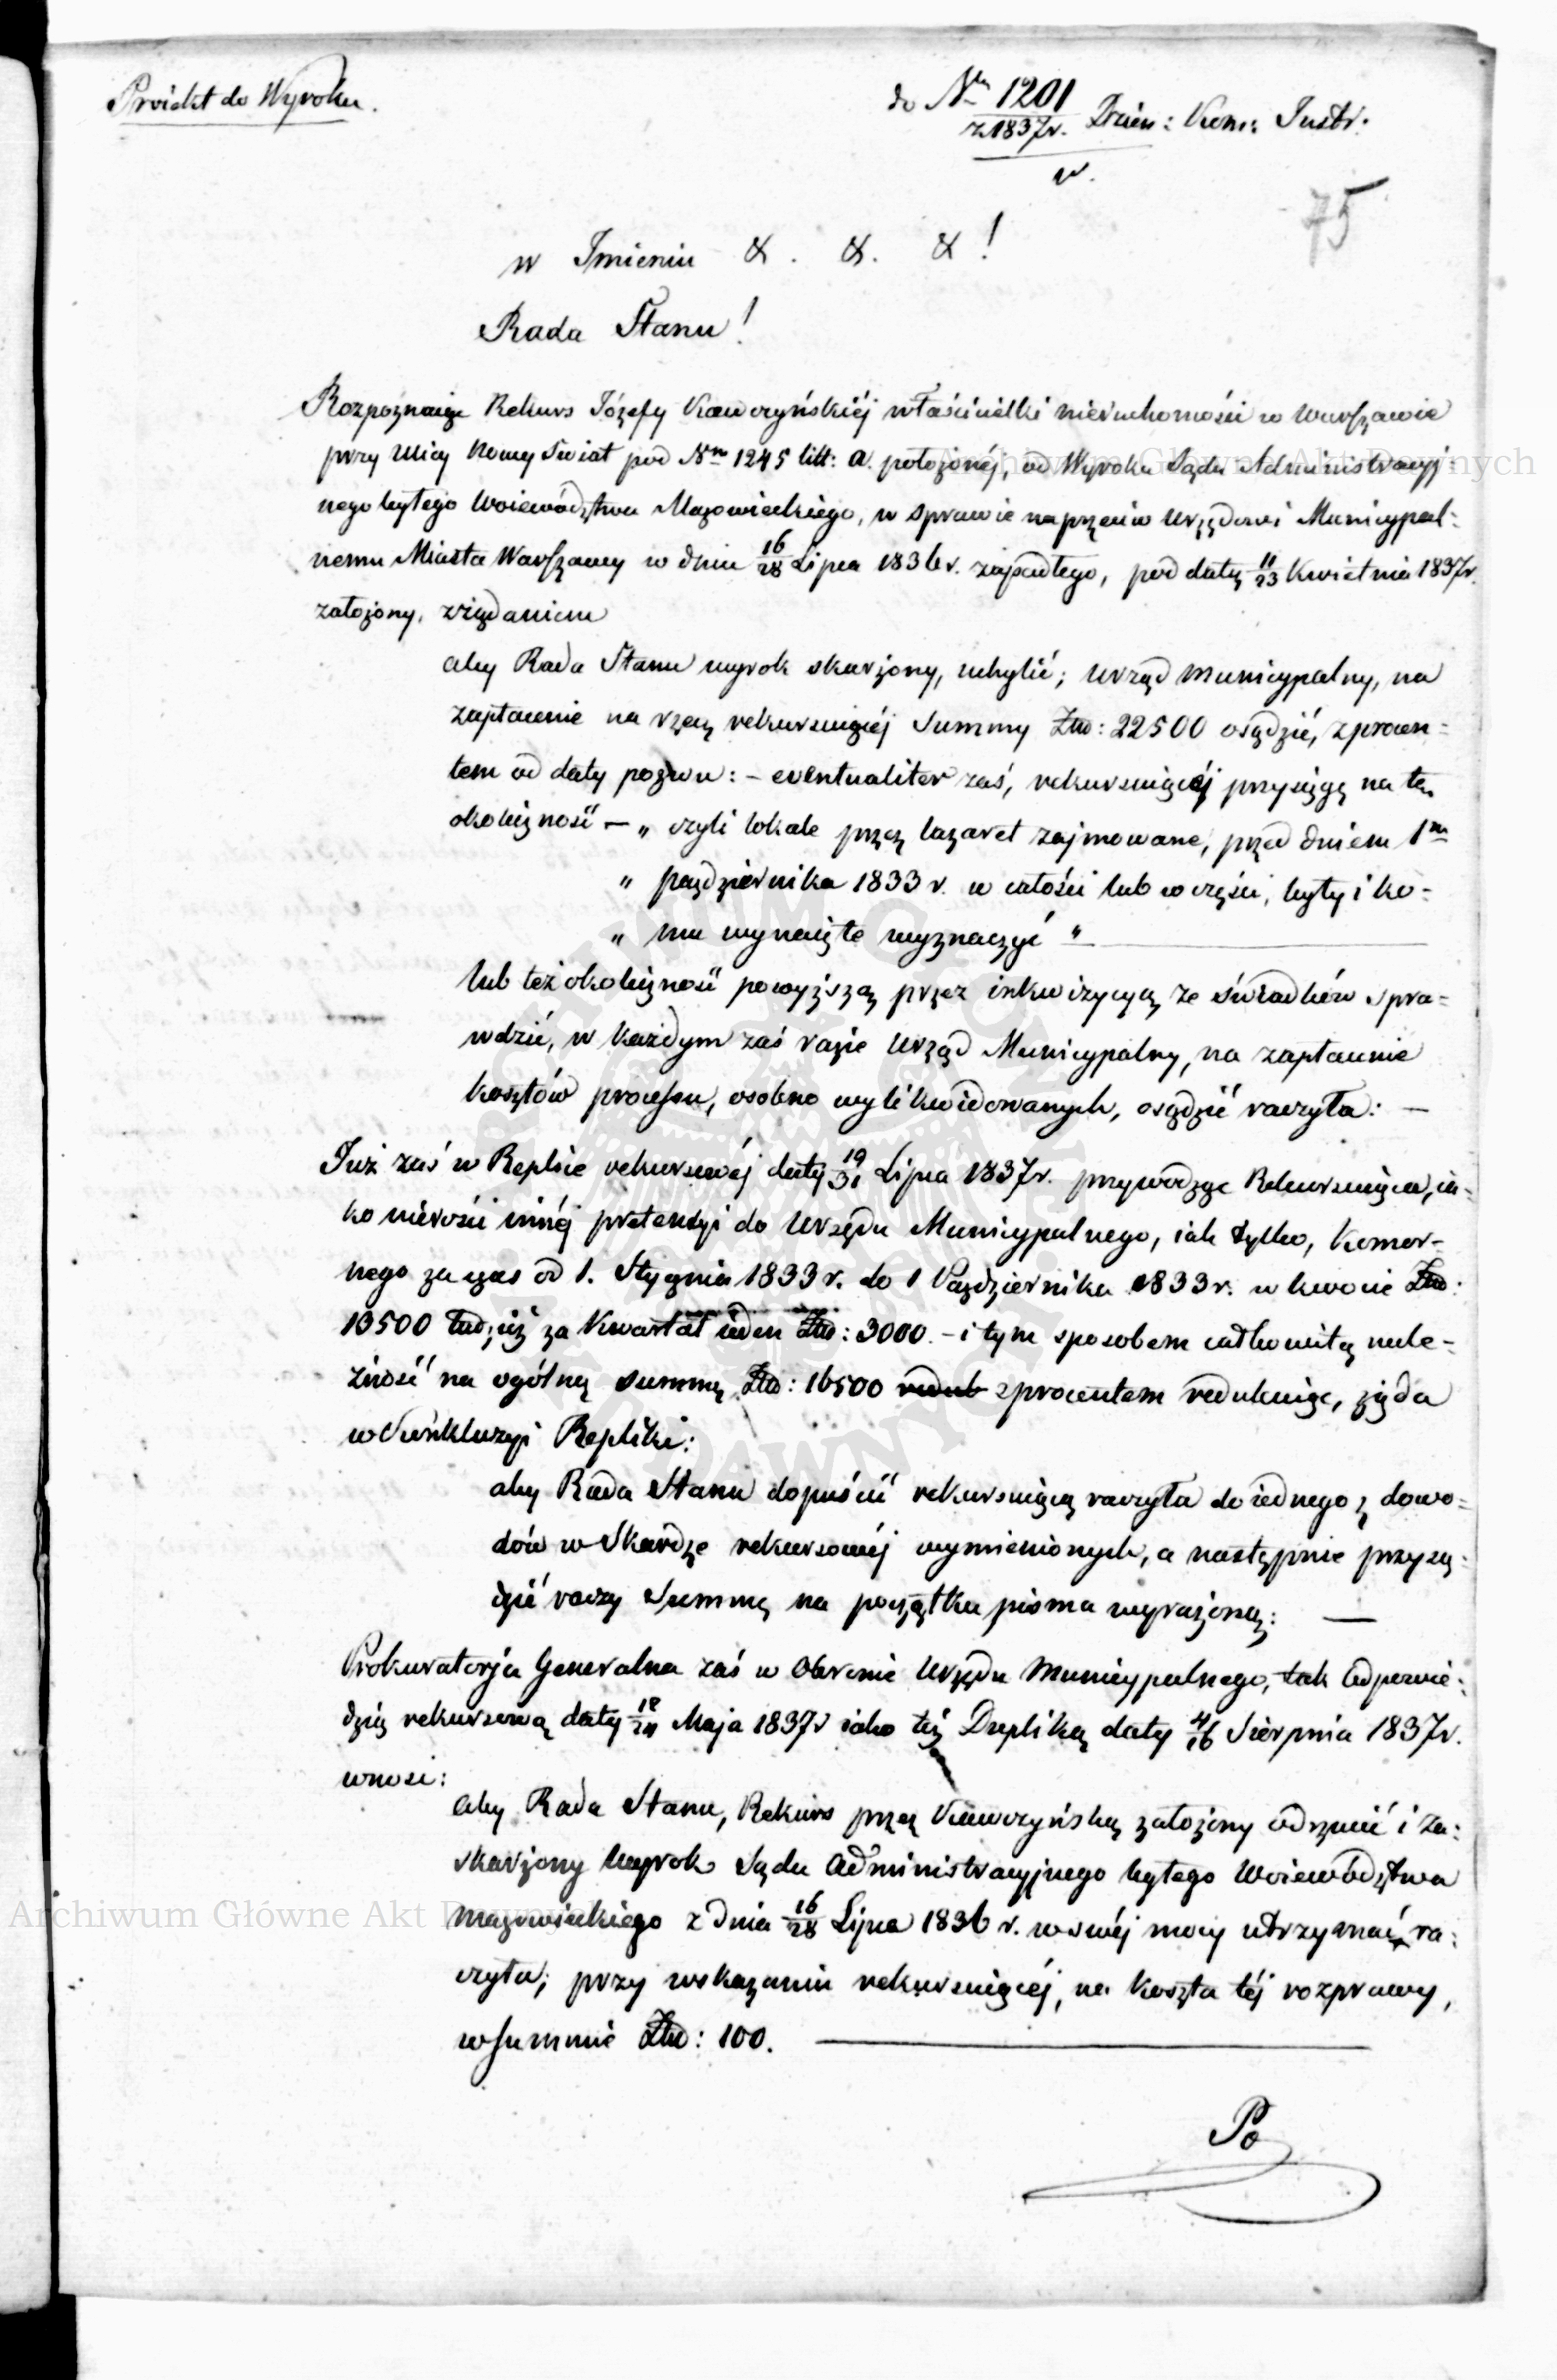 Proiekt do Wyroku.
do Nru 1201
z 1837r. Dzien: Kom: Instr.
w.
75
w Imieniu &. &. &!
Rada Stanu!
Rozpoznaiąc Rekurs Józefy Kawczyńskiéj właścicielki nieruchomości w Warszawie
przy Ulicy Nowy Swiat pod Nrm 1245 litt: a. położonéj, od Wyroku Sądu Administracyj:
nego byłego Woiewództwa Mazowieckiego, w sprawie naprzeciw Urzędowi Municypal:
nemu Miasta Warszawy w dniu 16/28 Lipca 1836 r. zapadłego, pod datą 11/23 Kwietnia 1837r.
założony, z żądaniem
aby Rada Stanu wyrok skarżony, uchylić; Urząd Municypalny, na
zapłacenie na rzecz rekursuiącéj Summy Złp: 22500 osądzić, z procen=
tem od daty pozwu: – eventualiter zaś, rekursuiącéj przysięgę na tę
okoliczność – „ czyli lokale przez lazaret zajmowane, przed dniem 1m
„ października 1833 r. w całości lub w części, były i ko=
„ mu wynaięte wyznaczyć "
lub też okoliczność powyższą przez inkwizycyą ze świadków spra=
wdzić, w każdym zaś razie Urząd Municypalny, na zapłacenie
kosztów processu, osobno wylikwidowanych, osądzić raczyła: —
Już zaś w Replice rekursowéj daty 19/31 Lipca 1837r. przywodząc Rekursuiąca, ia=
ko nierości innéj pretensyi do Urzędu Municypalnego, iak tylko, komor=
nego za czas od 1. Stycznia 1833 r. do 1 Października 1833 r. w kwocie Złp:
13500 tudzież za Kwartał ieden Złp: 3000. – i tym sposobem całkowitą nale=
żność na ogólną summę Złp: 16500 redub z procentem redukuiąc, żąda
w Konkluzyi Repliki:
aby Rada Stanu dopuścić rekursuiącą raczyła do iednego z dowo=
dów w Skardze rekursowéj wymienionych, a następnie przysą=
dzić raczy Summę na początku pisma wyrażoną: —
Prokuratorja Generalna zaś w Obronie Urzędu Municypalnego, tak Odpowie=
dzią rekursową daty 12/24 Maja 1837r iako też Dupliką daty 4/16 Sierpnia 1837r.
wnosi:
aby Rada Stanu, Rekurs przez Kawczyńską założony odrzucić i za=
skarżony Wyrok Sądu Administracyjnego byłego Woiewództwa
Mazowieckiego z dnia 16/28 Lipca 1836 r. w swéj mocy utrzymać ra=
czyła; przy wskazaniu rekursuiącéj, na koszta téj rozprawy,
w summie Złp: 100.
Po
Archiwum Główne Akt Dawnych
Archiwum Główne Akt Dawnych